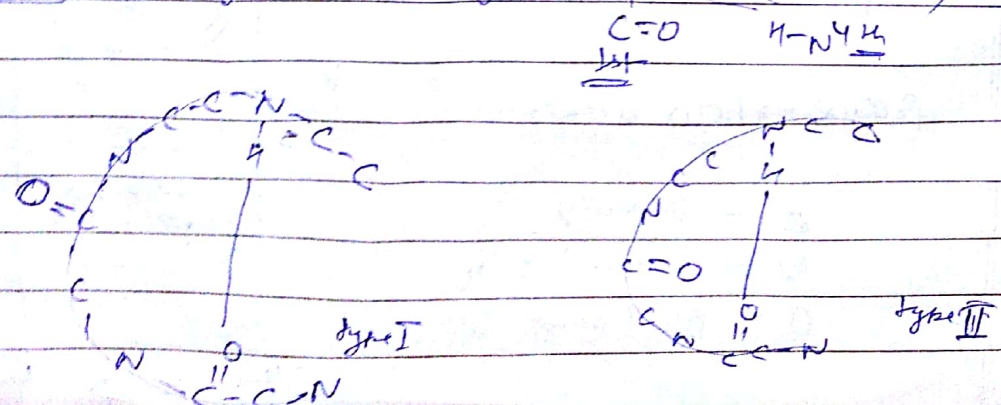 C=O H-N 4th
1st
C-C-N
N H =C-C
O=C
C
N O
C-C-N
type I
N C C
C C H
N
C=O
C N O
C C-N
type II